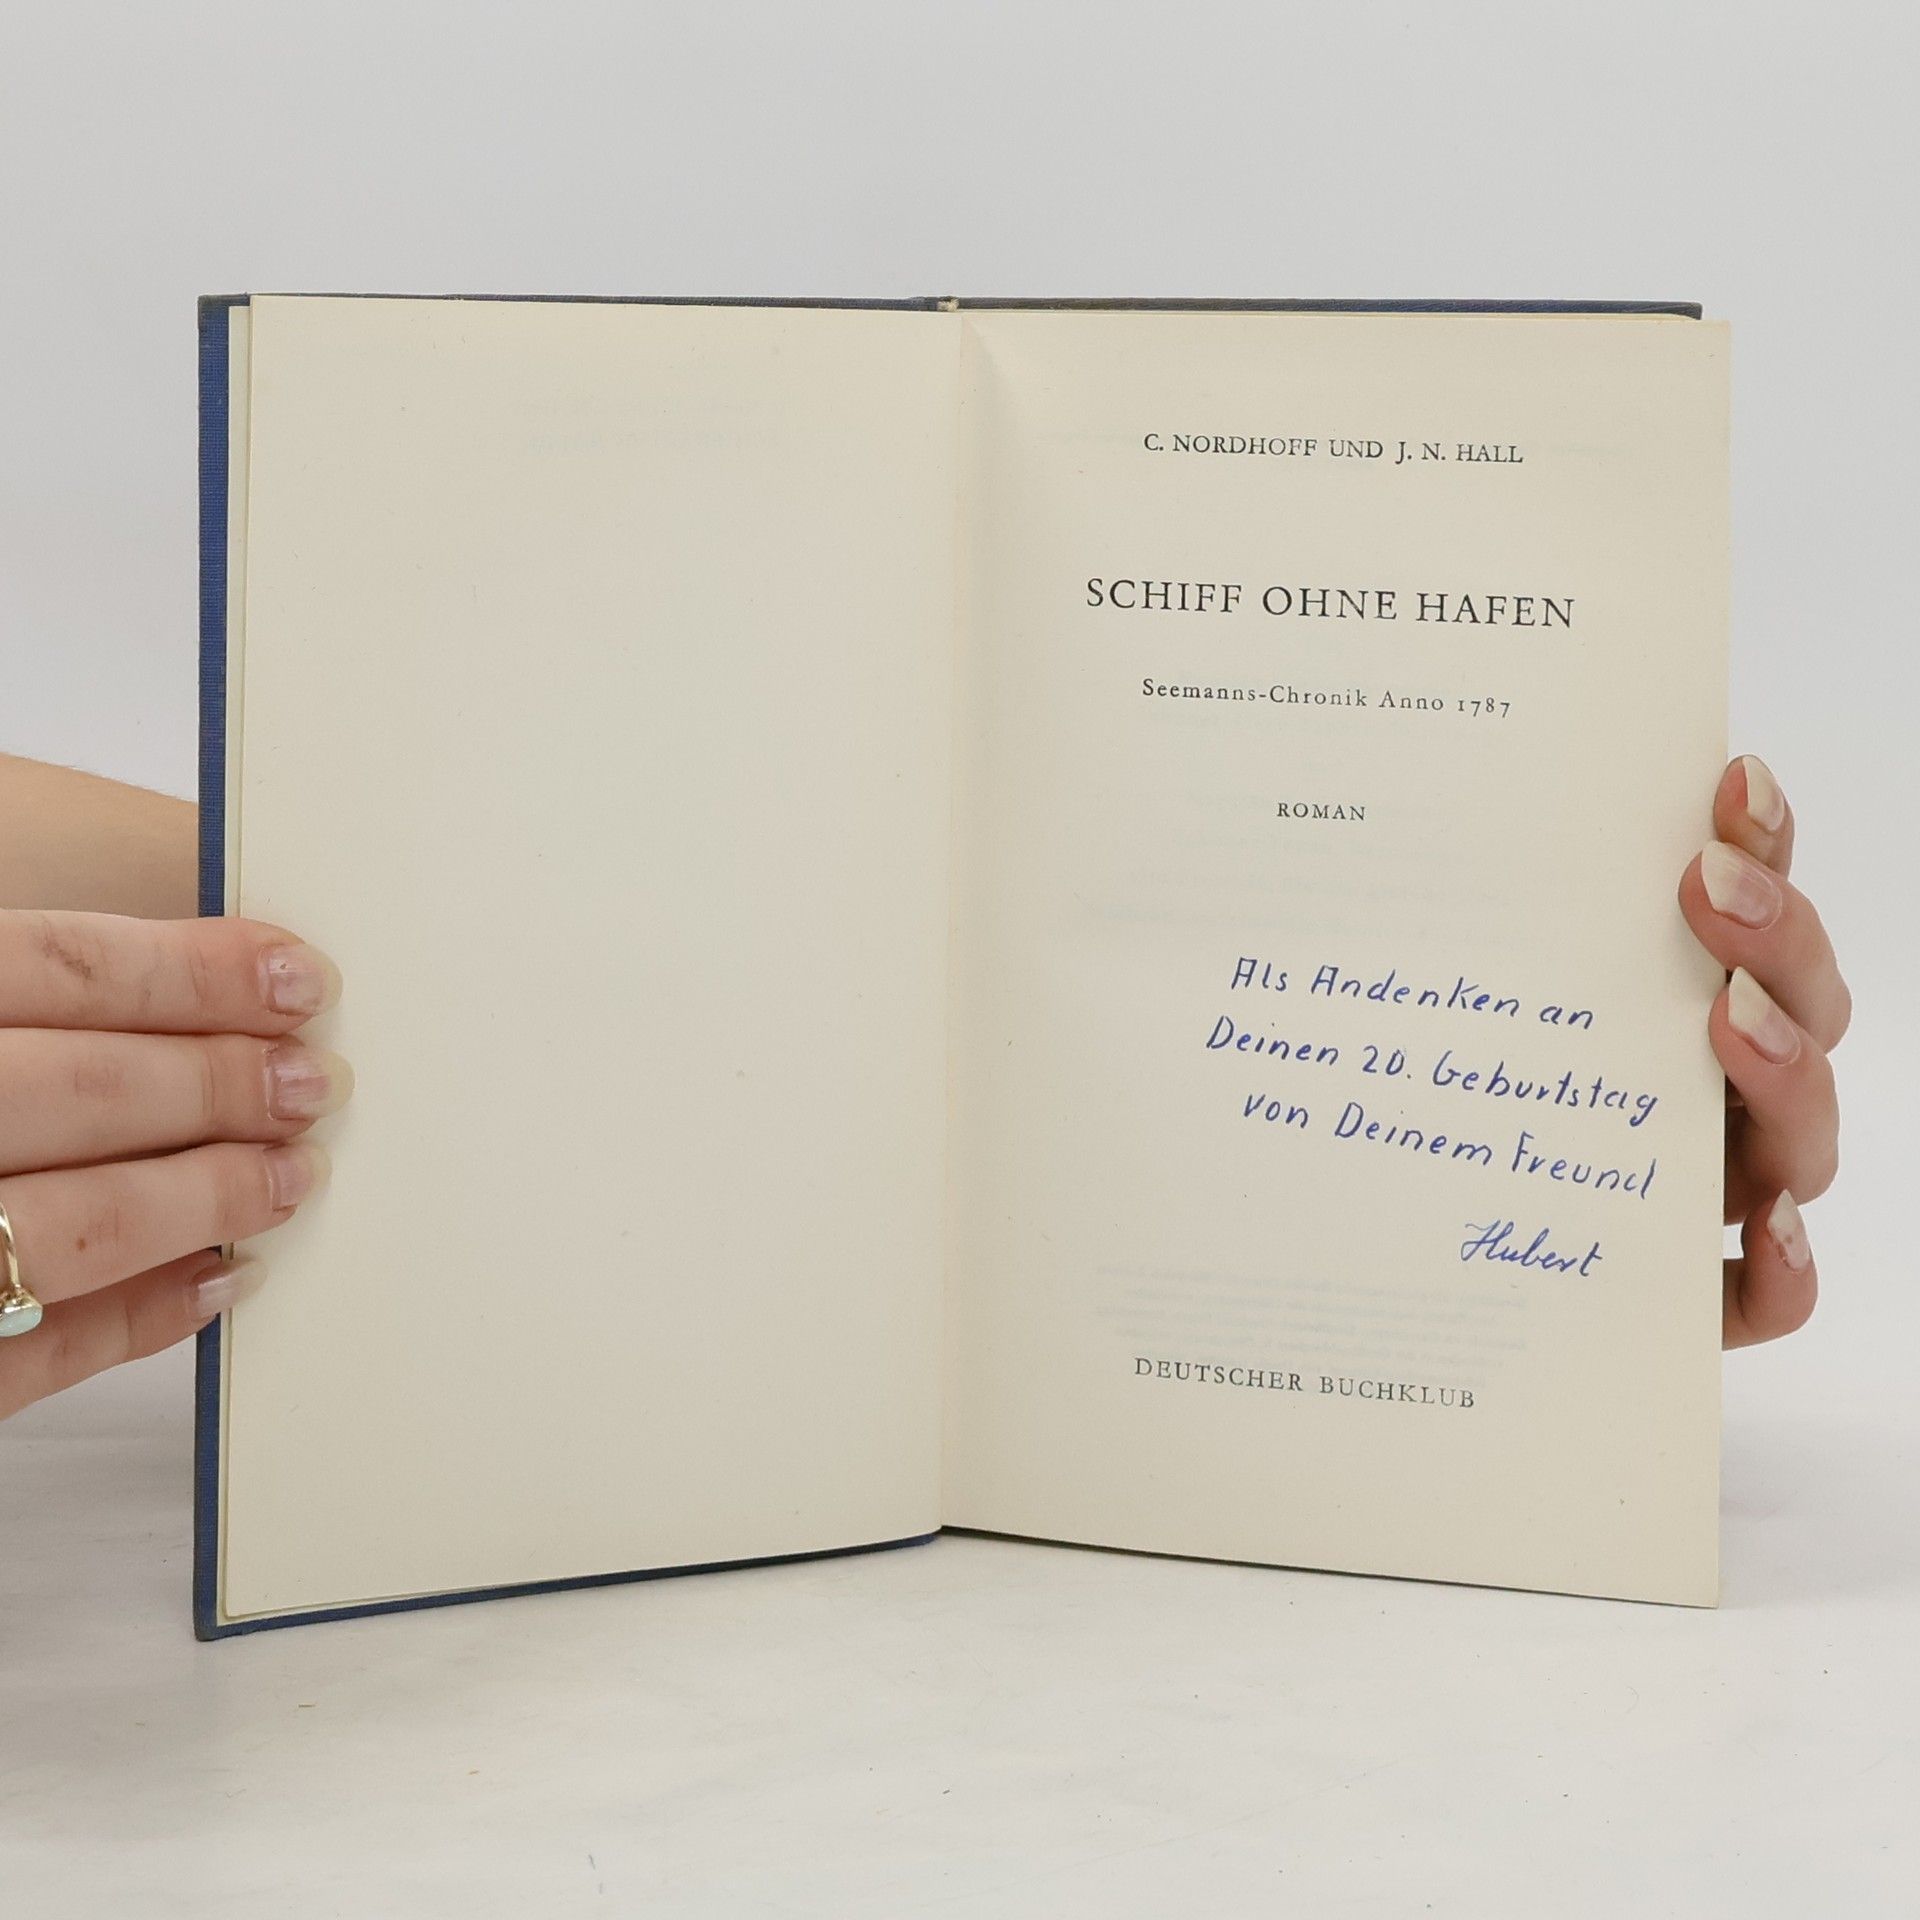 C. NORDHOFF UND J. N. HALL
SCHIFF OHNE HAFEN
Seemanns-Chronik Anno 1787
ROMAN
Als Andenken an
Deinen 20. Geburtstag
von Deinem Freund
Hubert
DEUTSCHER BUCHKLUB